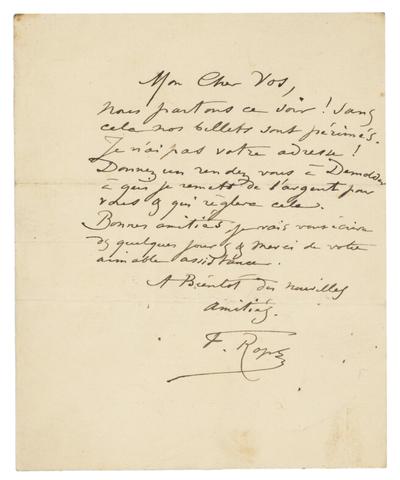 Mon Cher Vos,
nous partons ce soir ! Sans
cela nos billets sont périmés.
Je n'ai pas votre adresse !
Donnez un rendez vous à Demolder
à qui je remets de l'argent pour
vous & qui règlera cela.
Bonnes amitiés je vais vous écrire
ds quelques jours & merci de votre
aimable assistance.
A Bientot des nouvelles
amitiés.
F. Rops